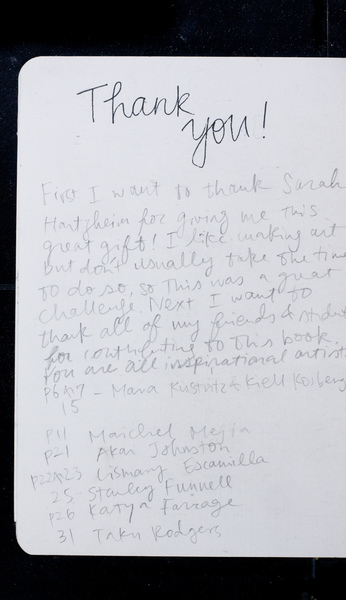 Thank
you!
First I want to thank Sarah
Hartzheim for giving me this
great gift! I like making art
but don't usually take the time
to do so, so this was a great
challenge. Next I want to
thank all of my friends & students
for contributing to this book.
You are all inspirational artists
p6 &7 - Mara Kusnitz + Kiell Kosberg
15
p11 Maichel Mejia
p21 Akar Johnston
p22&23 Lismany Escamilla
25 - Stanley Funnell
p26 Katya Farrage
31 Taku Rodgers